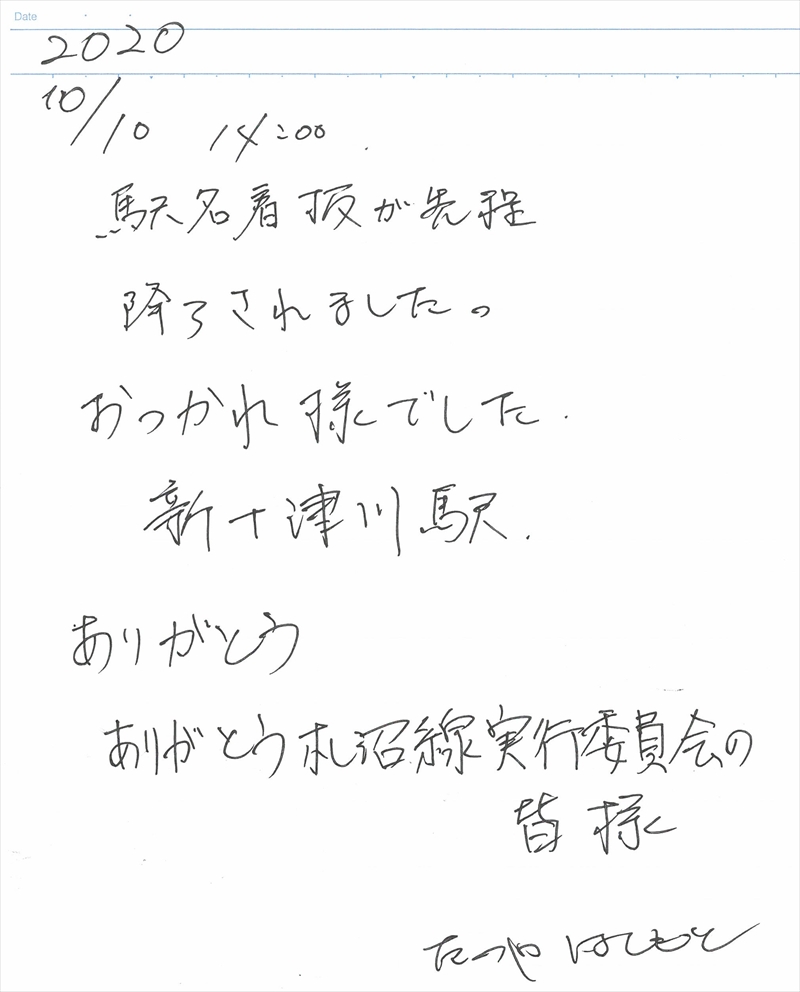 Date
2020
10/10 14:00.
駅名着板が先程
降ろされました。
おつかれ様でした.
新十津川駅.
ありがとう
ありがとう札沼線実行委員会の
皆様
たつや はしもと